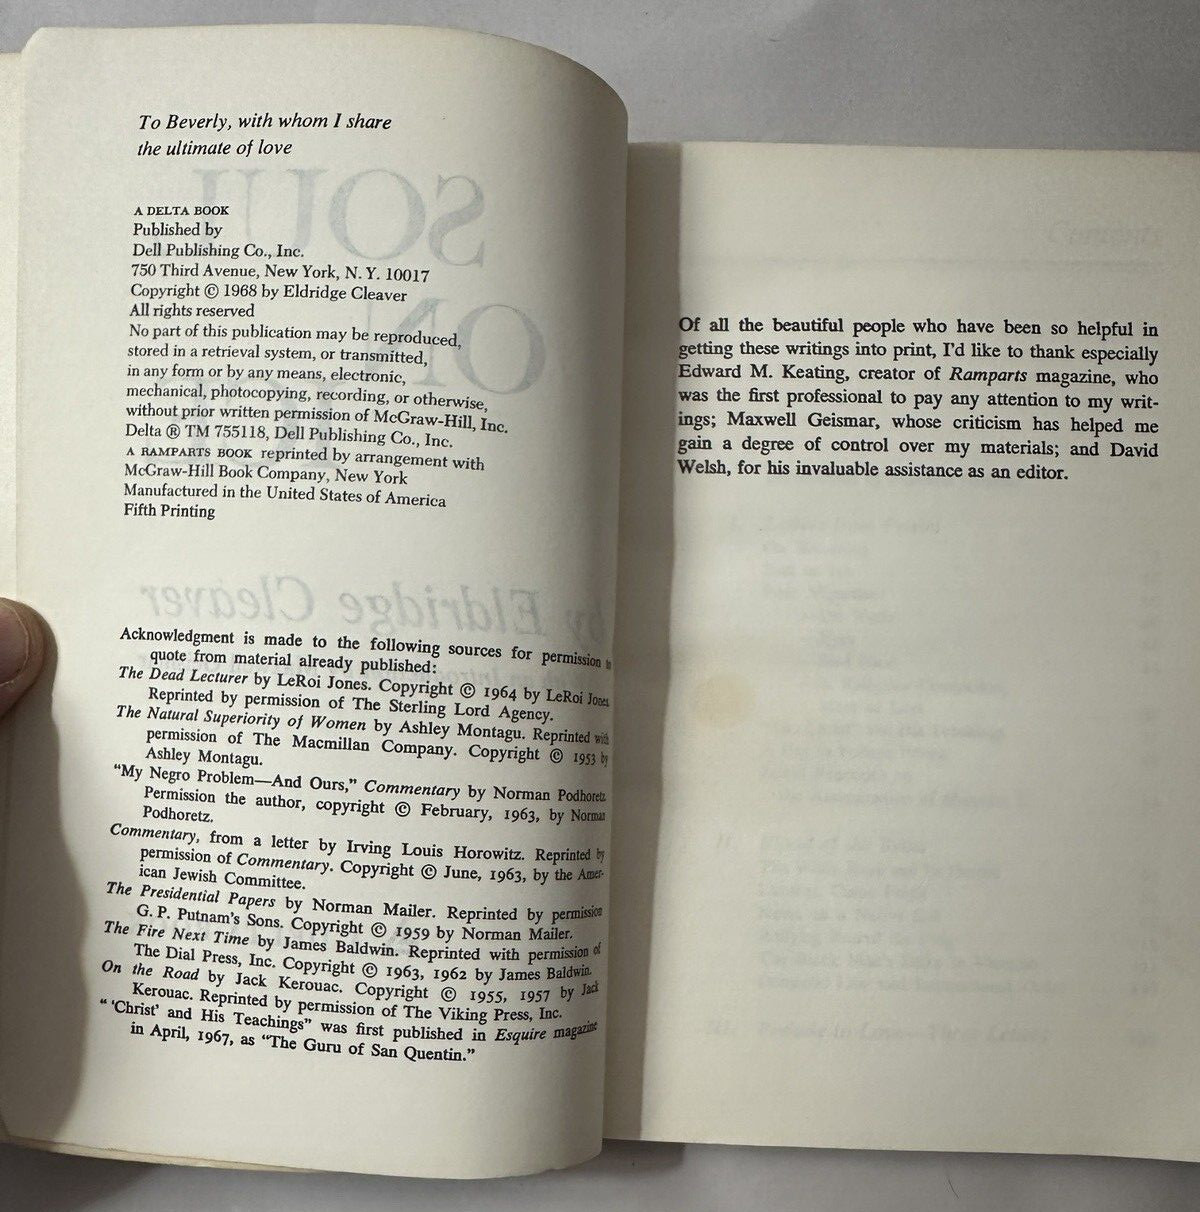 To Beverly, with whom I share
the ultimate of love
A DELTA BOOK
Published by
Dell Publishing Co., Inc.
750 Third Avenue, New York, N. Y. 10017
Copyright © 1968 by Eldridge Cleaver
All rights reserved
No part of this publication may be reproduced,
stored in a retrieval system, or transmitted,
in any form or by any means, electronic,
mechanical, photocopying, recording, or otherwise,
without prior written permission of McGraw-Hill, Inc.
Delta ® TM 755118, Dell Publishing Co., Inc.
A RAMPARTS BOOK reprinted by arrangement with
McGraw-Hill Book Company, New York
Manufactured in the United States of America
Fifth Printing
SOUL
ON
by Eldridge Cleaver
Acknowledgment is made to the following sources for permission to
quote from material already published:
The Dead Lecturer by LeRoi Jones. Copyright © 1964 by LeRoi Jones.
Reprinted by permission of The Sterling Lord Agency.
The Natural Superiority of Women by Ashley Montagu. Reprinted with
permission of The Macmillan Company. Copyright © 1953 by
Ashley Montagu.
"My Negro Problem—And Ours," Commentary by Norman Podhoretz.
Permission the author, copyright © February, 1963, by Norman
Podhoretz.
Commentary, from a letter by Irving Louis Horowitz. Reprinted by
permission of Commentary. Copyright © June, 1963, by the Amer-
ican Jewish Committee.
The Presidential Papers by Norman Mailer. Reprinted by permission
G. P. Putnam's Sons. Copyright © 1959 by Norman Mailer.
The Fire Next Time by James Baldwin. Reprinted with permission of
The Dial Press, Inc. Copyright © 1963, 1962 by James Baldwin.
On the Road by Jack Kerouac. Copyright © 1955, 1957 by Jack
Kerouac. Reprinted by permission of The Viking Press, Inc.
" 'Christ' and His Teachings" was first published in Esquire magazine
in April, 1967, as "The Guru of San Quentin."
Contents
Of all the beautiful people who have been so helpful in
getting these writings into print, I'd like to thank especially
Edward M. Keating, creator of Ramparts magazine, who
was the first professional to pay any attention to my writ-
ings; Maxwell Geismar, whose criticism has helped me
gain a degree of control over my materials; and David
Welsh, for his invaluable assistance as an editor.